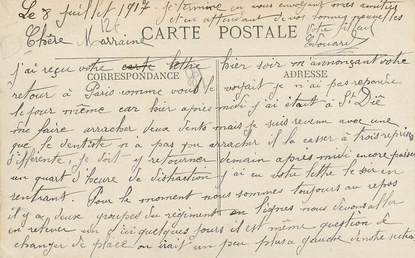 Le 8 Juillet 1917 je termine en vous envoyant mes amitiés
et en attendant de vos bonnes nouvelles
Chère Marraine
votre filleul
Edouard
CARTE POSTALE
CORRESPONDANCE
ADRESSE
j'ai reçu votre carte lettre hier soir m'annonçant votre
retour à Paris comme vous le voyez je n'ai pas répondu
le jour même car hier après midi j'ai était à St Dié
me faire arracher deux dents mais je suis revenu avec une
que le dentiste n'a pas pu arracher il la casser à trois reprises
différente, je doit y retourner demain après midi encore passer
un quart d'heure de distraction j'ai eu votre lettre le soir en
rentrant. Pour le moment nous sommes toujours au repos
il y a deux groupes du régiment en lignes nous devons aller
en relever un d'ici quelques jours il est même question de
changer de place on irait un peu plus a gauche